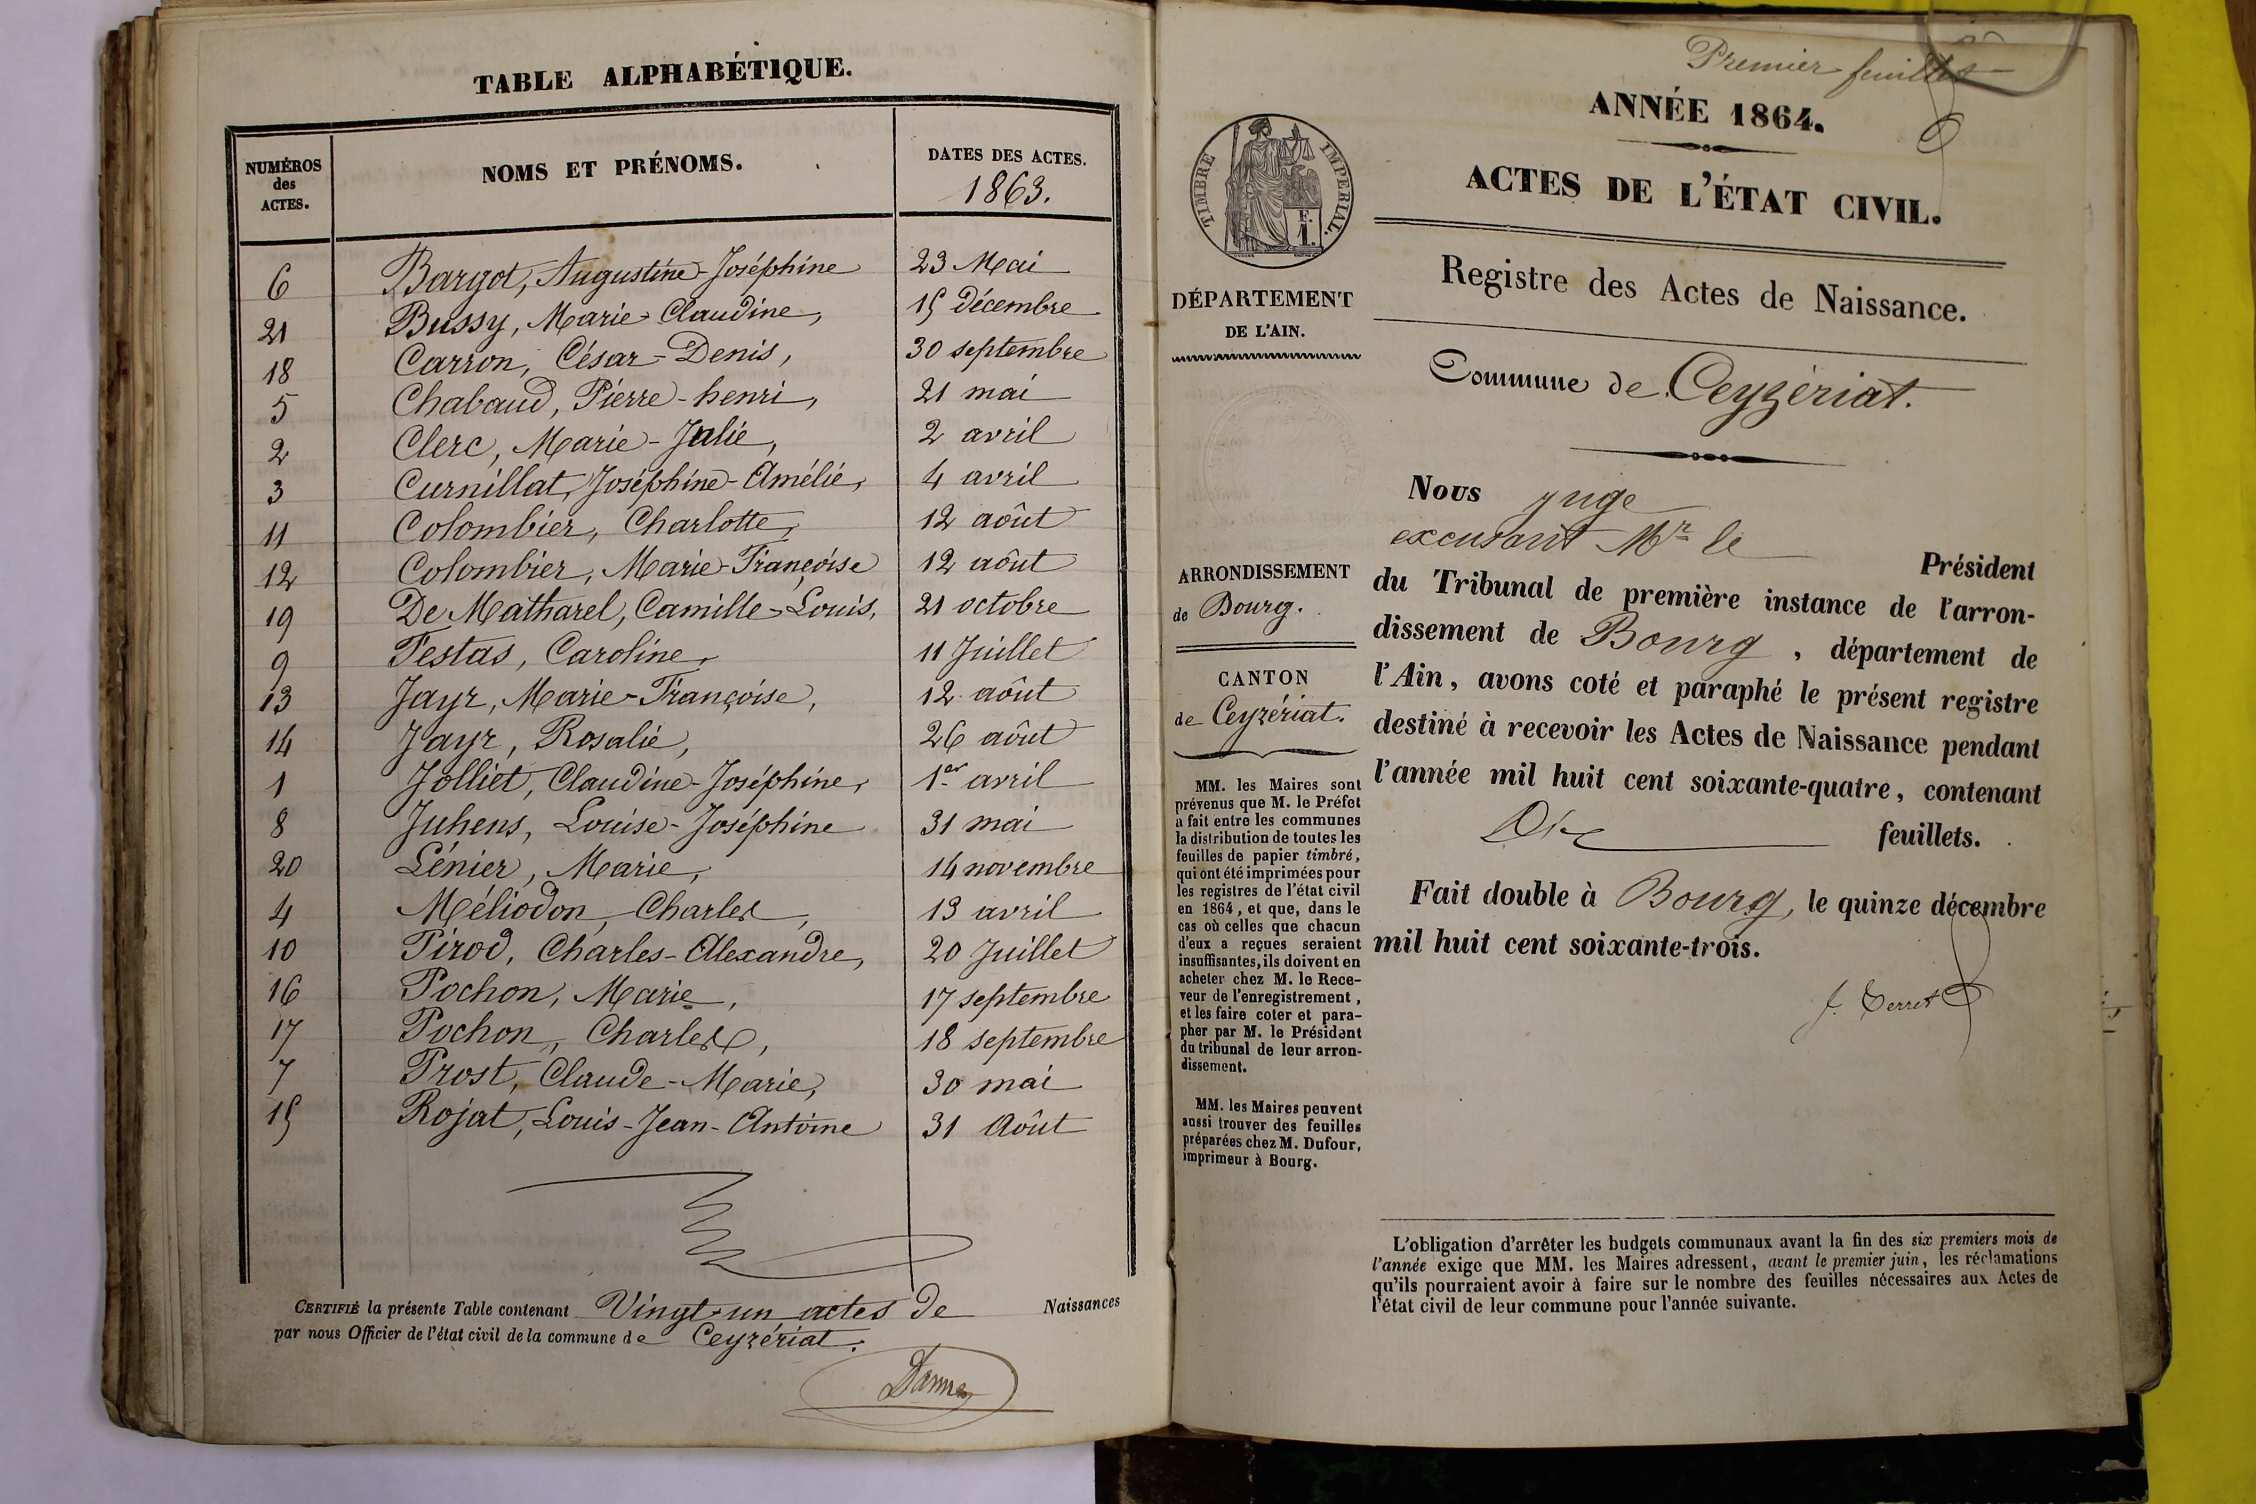 TABLE ALPHABÉTIQUE.
NUMÉROS des ACTES. NOMS ET PRÉNOMS. DATES DES ACTES. 1863.
6 Bargot, Augustine-Joséphine 23 Mai
21 Bussy, Marie-Claudine, 15 Décembre
18 Carron, César-Denis, 30 septembre
5 Chabaud, Pierre-henri, 21 mai
2 Clerc, Marie-Julie, 2 avril
3 Curnillat, Joséphine-Amélie, 4 avril
11 Colombier, Charlotte, 12 août
12 Colombier, Marie-Françoise 12 août
19 De Matharel, Camille-Louis, 21 octobre
9 Festas, Caroline, 11 Juillet
13 Jayr, Marie-Françoise, 12 août
14 Jayr, Rosalie, 26 août
1 Jolliet, Claudine-Joséphine, 1er avril
8 Juhens, Louise-Joséphine 31 mai
20 Lénier, Marie, 14 novembre
4 Méliodon, Charles, 13 avril
10 Pirod, Charles-Alexandre, 20 Juillet
16 Pochon, Marie, 17 septembre
17 Pochon, Charles, 18 septembre
7 Prost, Claude-Marie, 30 mai
15 Rojat, Louis-Jean-Antoine 31 Août
CERTIFIÉ la présente Table contenant Vingt-un actes de Naissances
par nous Officier de l'état civil de la commune de Ceyzériat.
Premier feuillet
ANNÉE 1864.
ACTES DE L'ÉTAT CIVIL.
TIMBRE IMPERIAL.
F.
1.
DÉPARTEMENT
DE L'AIN.
Registre des Actes de Naissance.
Commune de Ceyzériat.
ARRONDISSEMENT
de Bourg.
CANTON
de Ceyzériat.
MM. les Maires sont
prévenus que M. le Préfet
a fait entre les communes
la distribution de toutes les
feuilles de papier timbré,
qui ont été imprimées pour
les registres de l'état civil
en 1864, et que, dans le
cas où celles que chacun
d'eux a reçues seraient
insuffisantes, ils doivent en
acheter chez M. le Rece-
veur de l'enregistrement,
et les faire coter et para-
pher par M. le Président
du tribunal de leur arron-
dissement.
MM. les Maires peuvent
aussi trouver des feuilles
préparées chez M. Dufour,
imprimeur à Bourg.
Nous juge
excusant Mr le Président
du Tribunal de première instance de l'arron-
dissement de Bourg, département de
l'Ain, avons coté et paraphé le présent registre
destiné à recevoir les Actes de Naissance pendant
l'année mil huit cent soixante-quatre, contenant
Dix feuillets.
Fait double à Bourg, le quinze décembre
mil huit cent soixante-trois.
L'obligation d'arrêter les budgets communaux avant la fin des six premiers mois de
l'année exige que MM. les Maires adressent, avant le premier juin, les réclamations
qu'ils pourraient avoir à faire sur le nombre des feuilles nécessaires aux Actes de
l'état civil de leur commune pour l'année suivante.